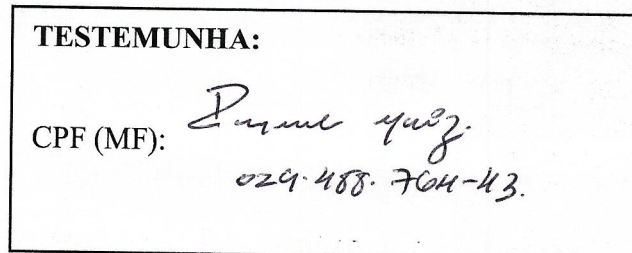 TESTEMUNHA:
CPF (MF):
029.488.764-43.